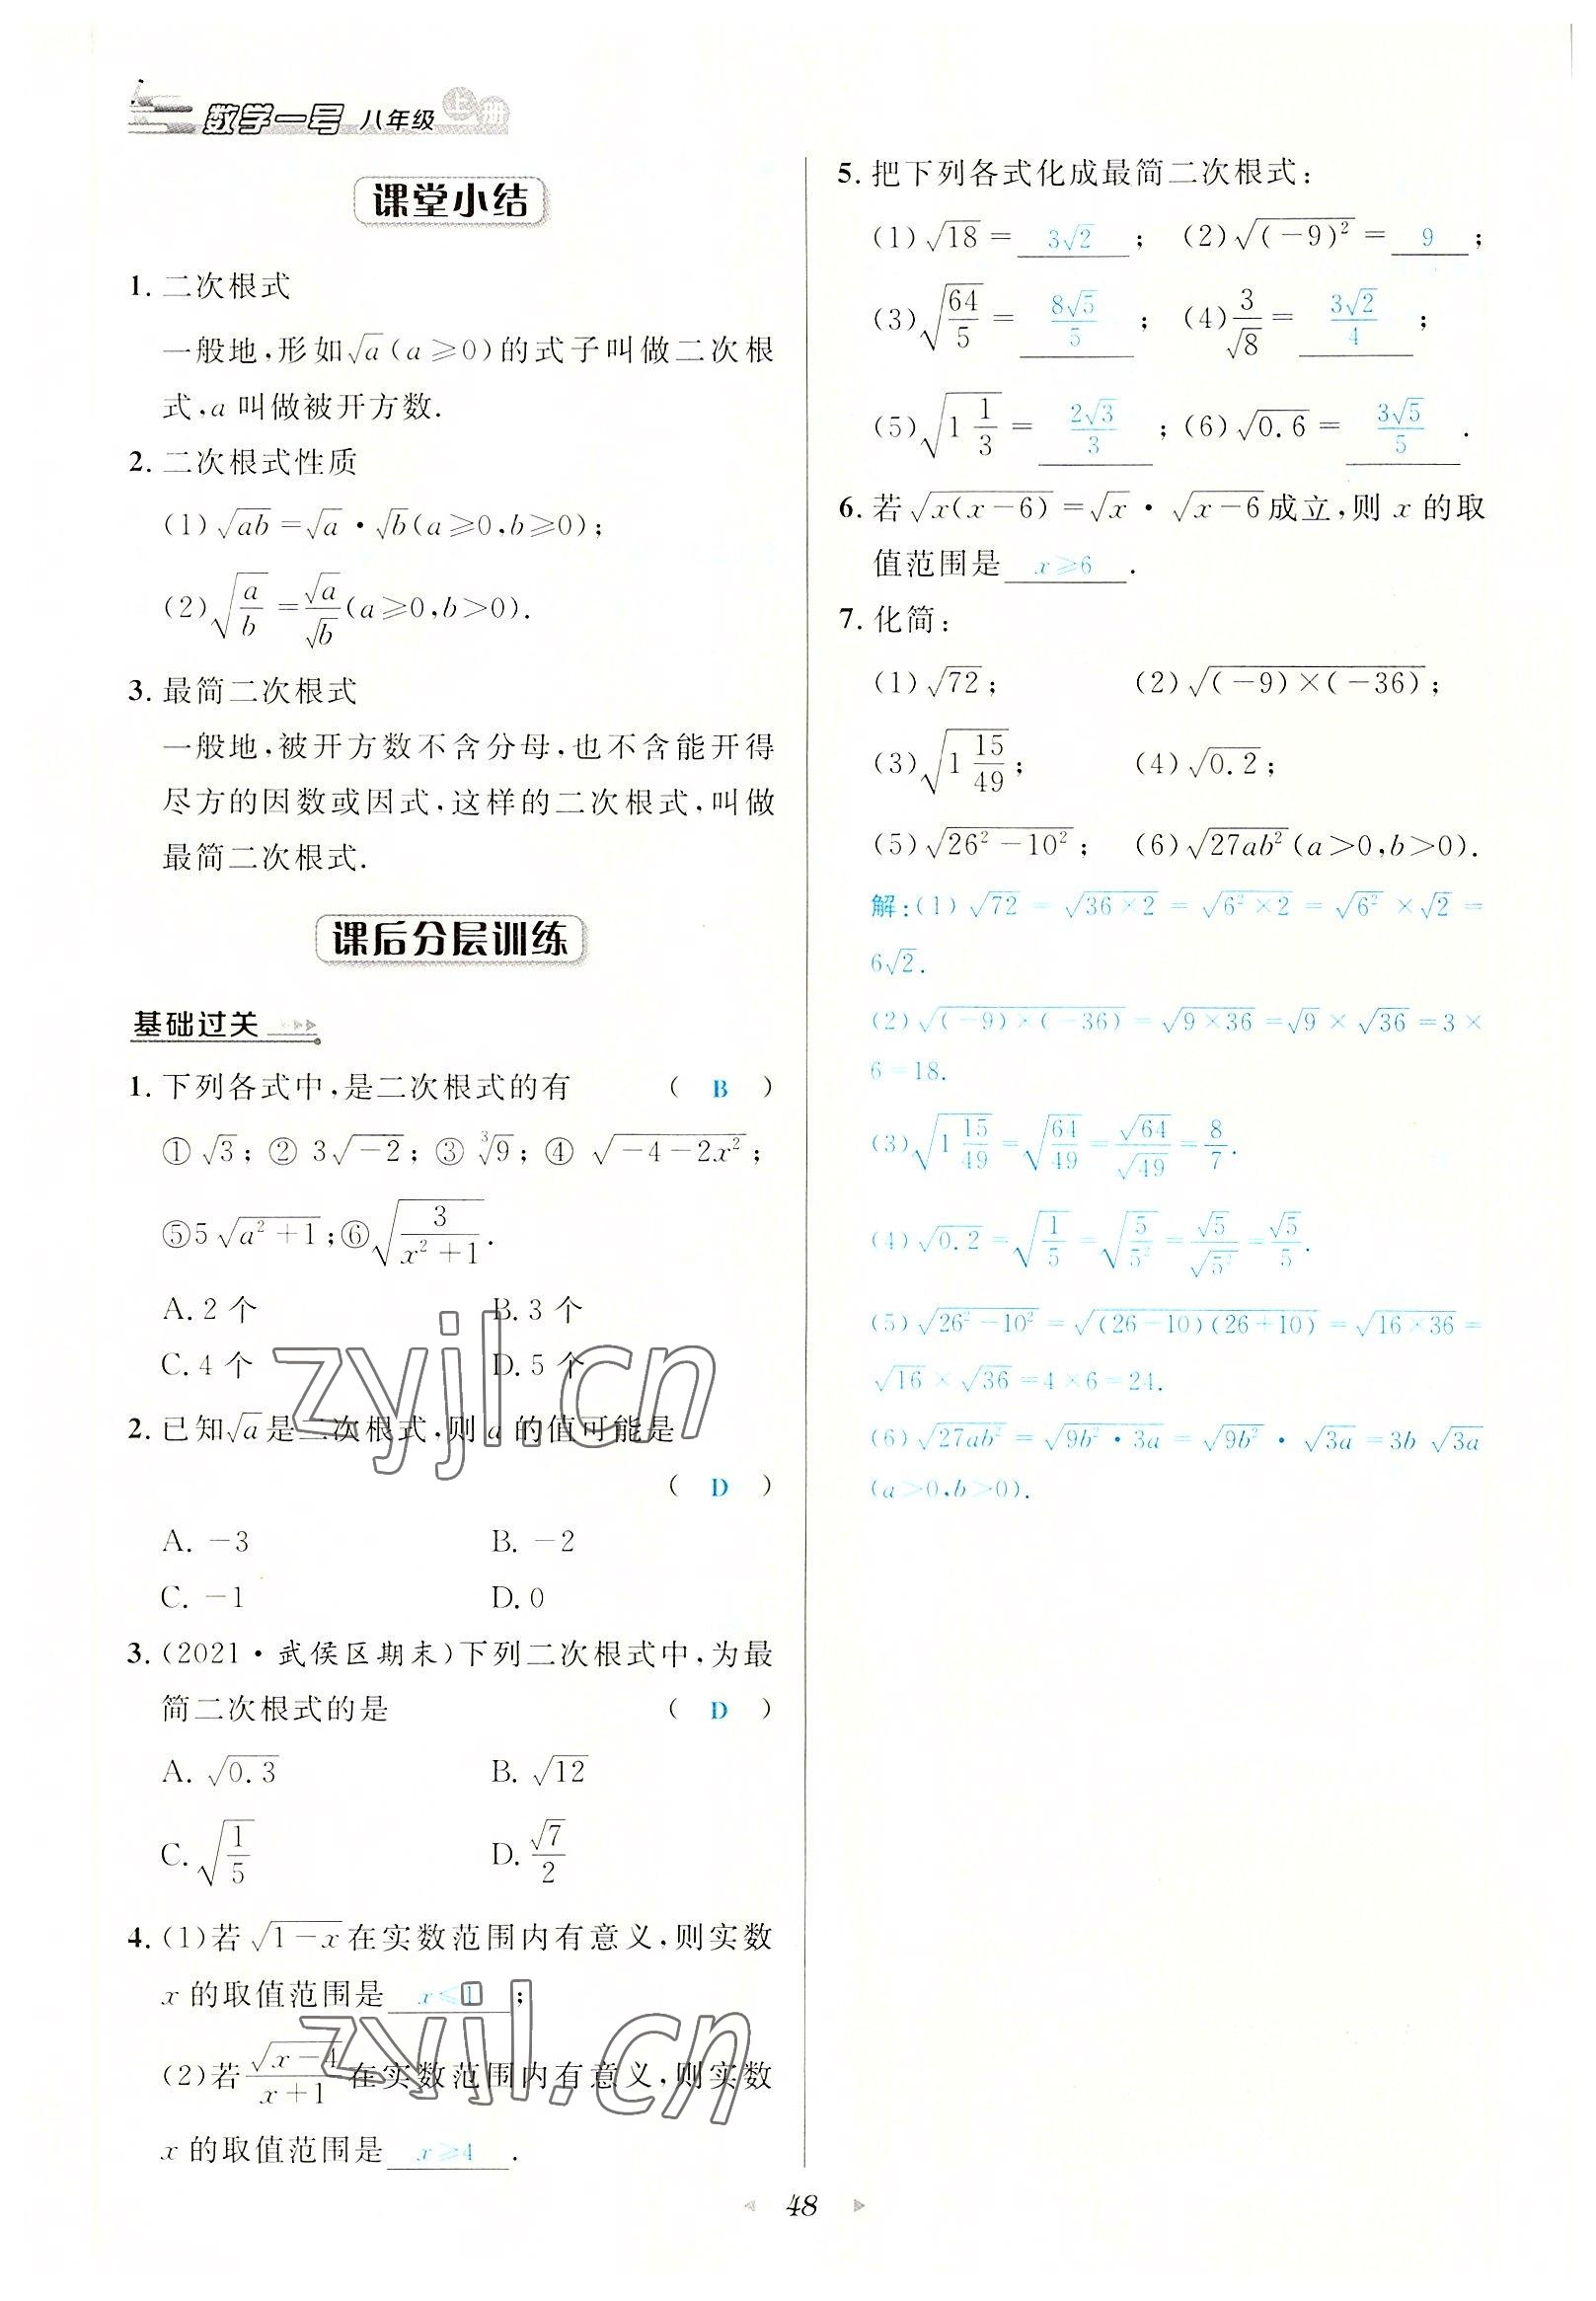 数学一号 八年级 上册
课堂小结
1. 二次根式
一般地,形如√a(a≥0)的式子叫做二次根
式,a叫做被开方数.
2. 二次根式性质
(1)√(ab)=√a·√b(a≥0,b≥0);
(2)√(a/b)=√a/√b(a≥0,b>0).
3. 最简二次根式
一般地,被开方数不含分母,也不含能开得
尽方的因数或因式,这样的二次根式,叫做
最简二次根式.
课后分层训练
基础过关
1. 下列各式中,是二次根式的有 ( B )
①√3;②3√(-2);③∛9;④√(-4-2x²);
⑤5√(a²+1);⑥√(3/(x²+1)).
A. 2个 B. 3个
C. 4个 D. 5个
2. 已知√a是二次根式,则a的值可能是
( D )
A. -3 B. -2
C. -1 D. 0
3. (2021·武侯区期末)下列二次根式中,为最
简二次根式的是 ( D )
A. √0.3 B. √12
C. √(1/5) D. √7/2
4. (1)若√(1-x)在实数范围内有意义,则实数
x的取值范围是 x≤1 ;
(2)若√(x-4)/(x+1)在实数范围内有意义,则实数
x的取值范围是 x≥4 .
5. 把下列各式化成最简二次根式:
(1)√18= 3√2 ; (2)√((-9)²)= 9 ;
(3)√(64/5)= 8√5/5 ; (4)3/√8= 3√2/4 ;
(5)√(1 1/3)= 2√3/3 ;(6)√0.6= 3√5/5 .
6. 若√(x(x-6))=√x·√(x-6)成立,则x的取
值范围是 x≥6 .
7. 化简:
(1)√72; (2)√((-9)×(-36));
(3)√(1 15/49); (4)√0.2;
(5)√(26²-10²); (6)√(27ab²)(a>0,b>0).
解:(1)√72=√(36×2)=√(6²×2)=√(6²)×√2=
6√2.
(2)√((-9)×(-36))=√(9×36)=√9×√36=3×
6=18.
(3)√(1 15/49)=√(64/49)=√64/√49=8/7.
(4)√0.2=√(1/5)=√(5/5²)=√5/√(5²)=√5/5.
(5)√(26²-10²)=√((26-10)(26+10))=√(16×36)=
√16×√36=4×6=24.
(6)√(27ab²)=√(9b²·3a)=√(9b²)·√(3a)=3b√(3a)
(a>0,b>0).
48
zyjl.cn
zyjl.cn